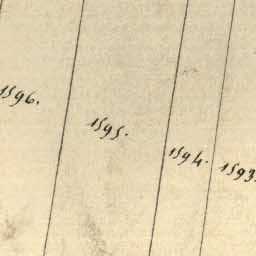 1596.
1595.
1594.
1593.